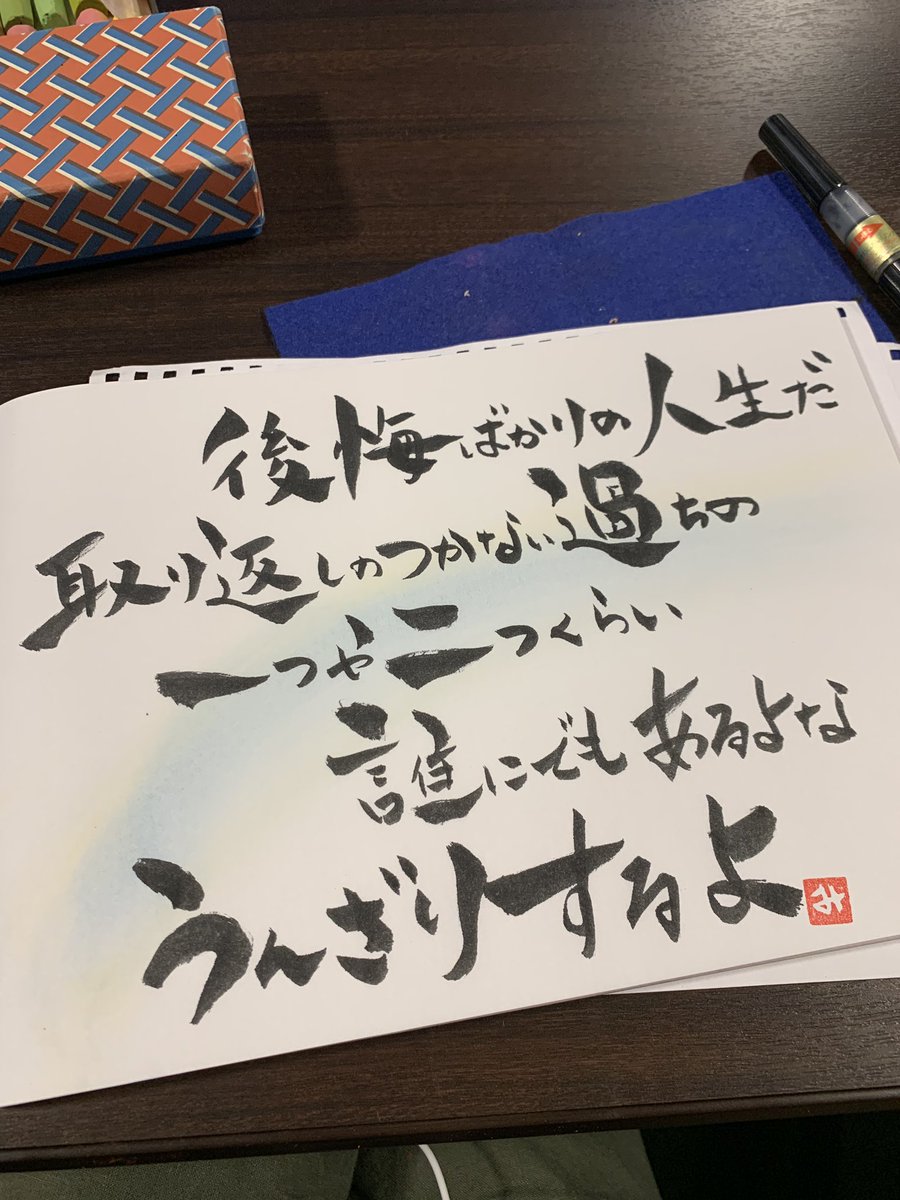 後悔ばかりの人生だ
取り返しのつかない過ちの
一つや二つくらい
誰にでもあるよな
うんざりするよ
み